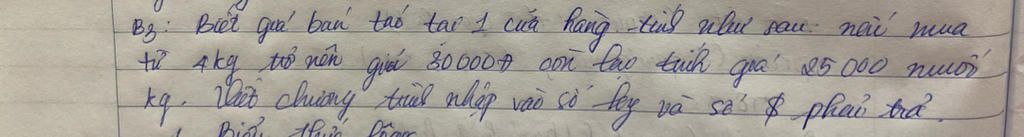 B3: Biết giá bán táo tại 1 cửa hàng tính như sau: nếu mua
từ 4kg trở nên giá 30000đ còn táo tính giá 25000
kg. Viết chương trình nhập vào số kg và số $ phải trả.